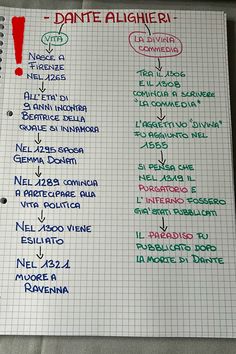 - DANTE ALIGHIERI -
VITA
NASCE A
FIRENZE
NEL 1265
ALL'ETA' DI
9 ANNI INCONTRA
BEATRICE DELLA
QUALE SI INNAMORA
NEL 1295 SPOSA
GEMMA DONATI
NEL 1289 COMINCIA
A PARTECIPARE ALLA
VITA POLITICA
NEL 1300 VIENE
ESILIATO
NEL 1321
MUORE A
RAVENNA
LA DIVINA
COMMEDIA
TRA IL 1306
E IL 1308
COMINCIA A SCRIVERE
"LA COMMEDIA"
L'AGGETTIVO "DIVINA"
FU AGGIUNTO NEL
1555
SI PENSA CHE
NEL 1319 IL
PURGATORIO E
L'INFERNO FOSSERO
GIA' STATI PUBBLICATI
IL PARADISO FU
PUBBLICATO DOPO
LA MORTE DI DANTE